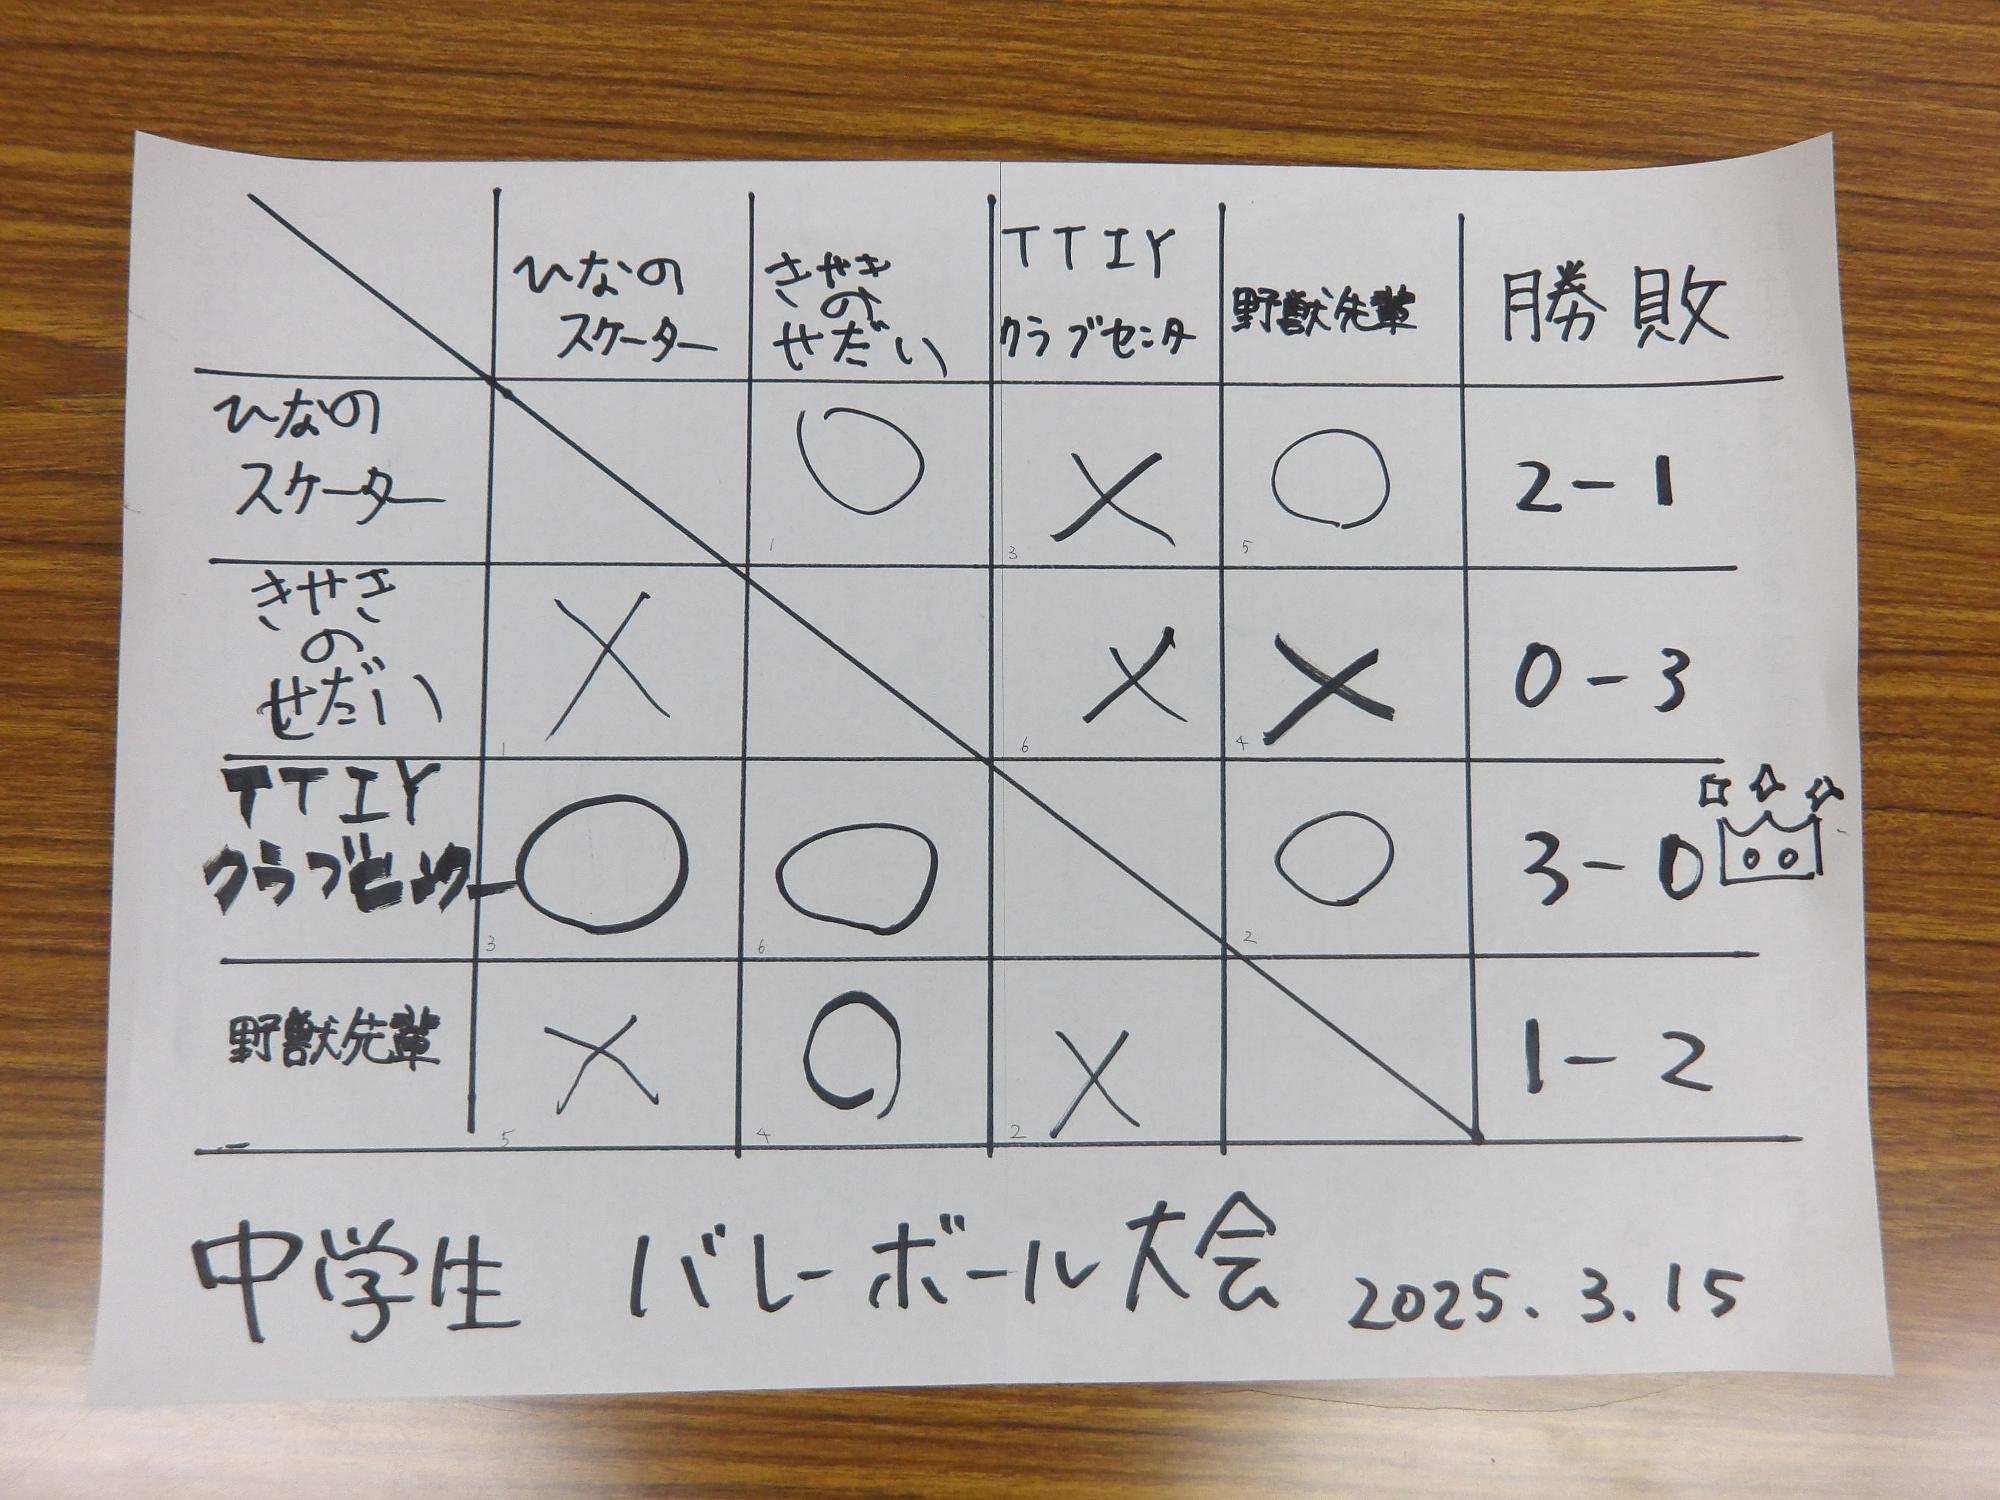 ひなの
スケーター
きせき
の
せだい
TTIY
クラブセンター
野獣先輩
勝敗
ひなの
スケーター
○
×
○
2-1
1
3
5
きせき
の
せだい
×
×
×
0-3
1
6
4
TTIY
クラブセンター
○
○
○
3-0
3
6
2
野獣先輩
×
○
×
1-2
5
4
2
中学生 バレーボール大会 2025.3.15